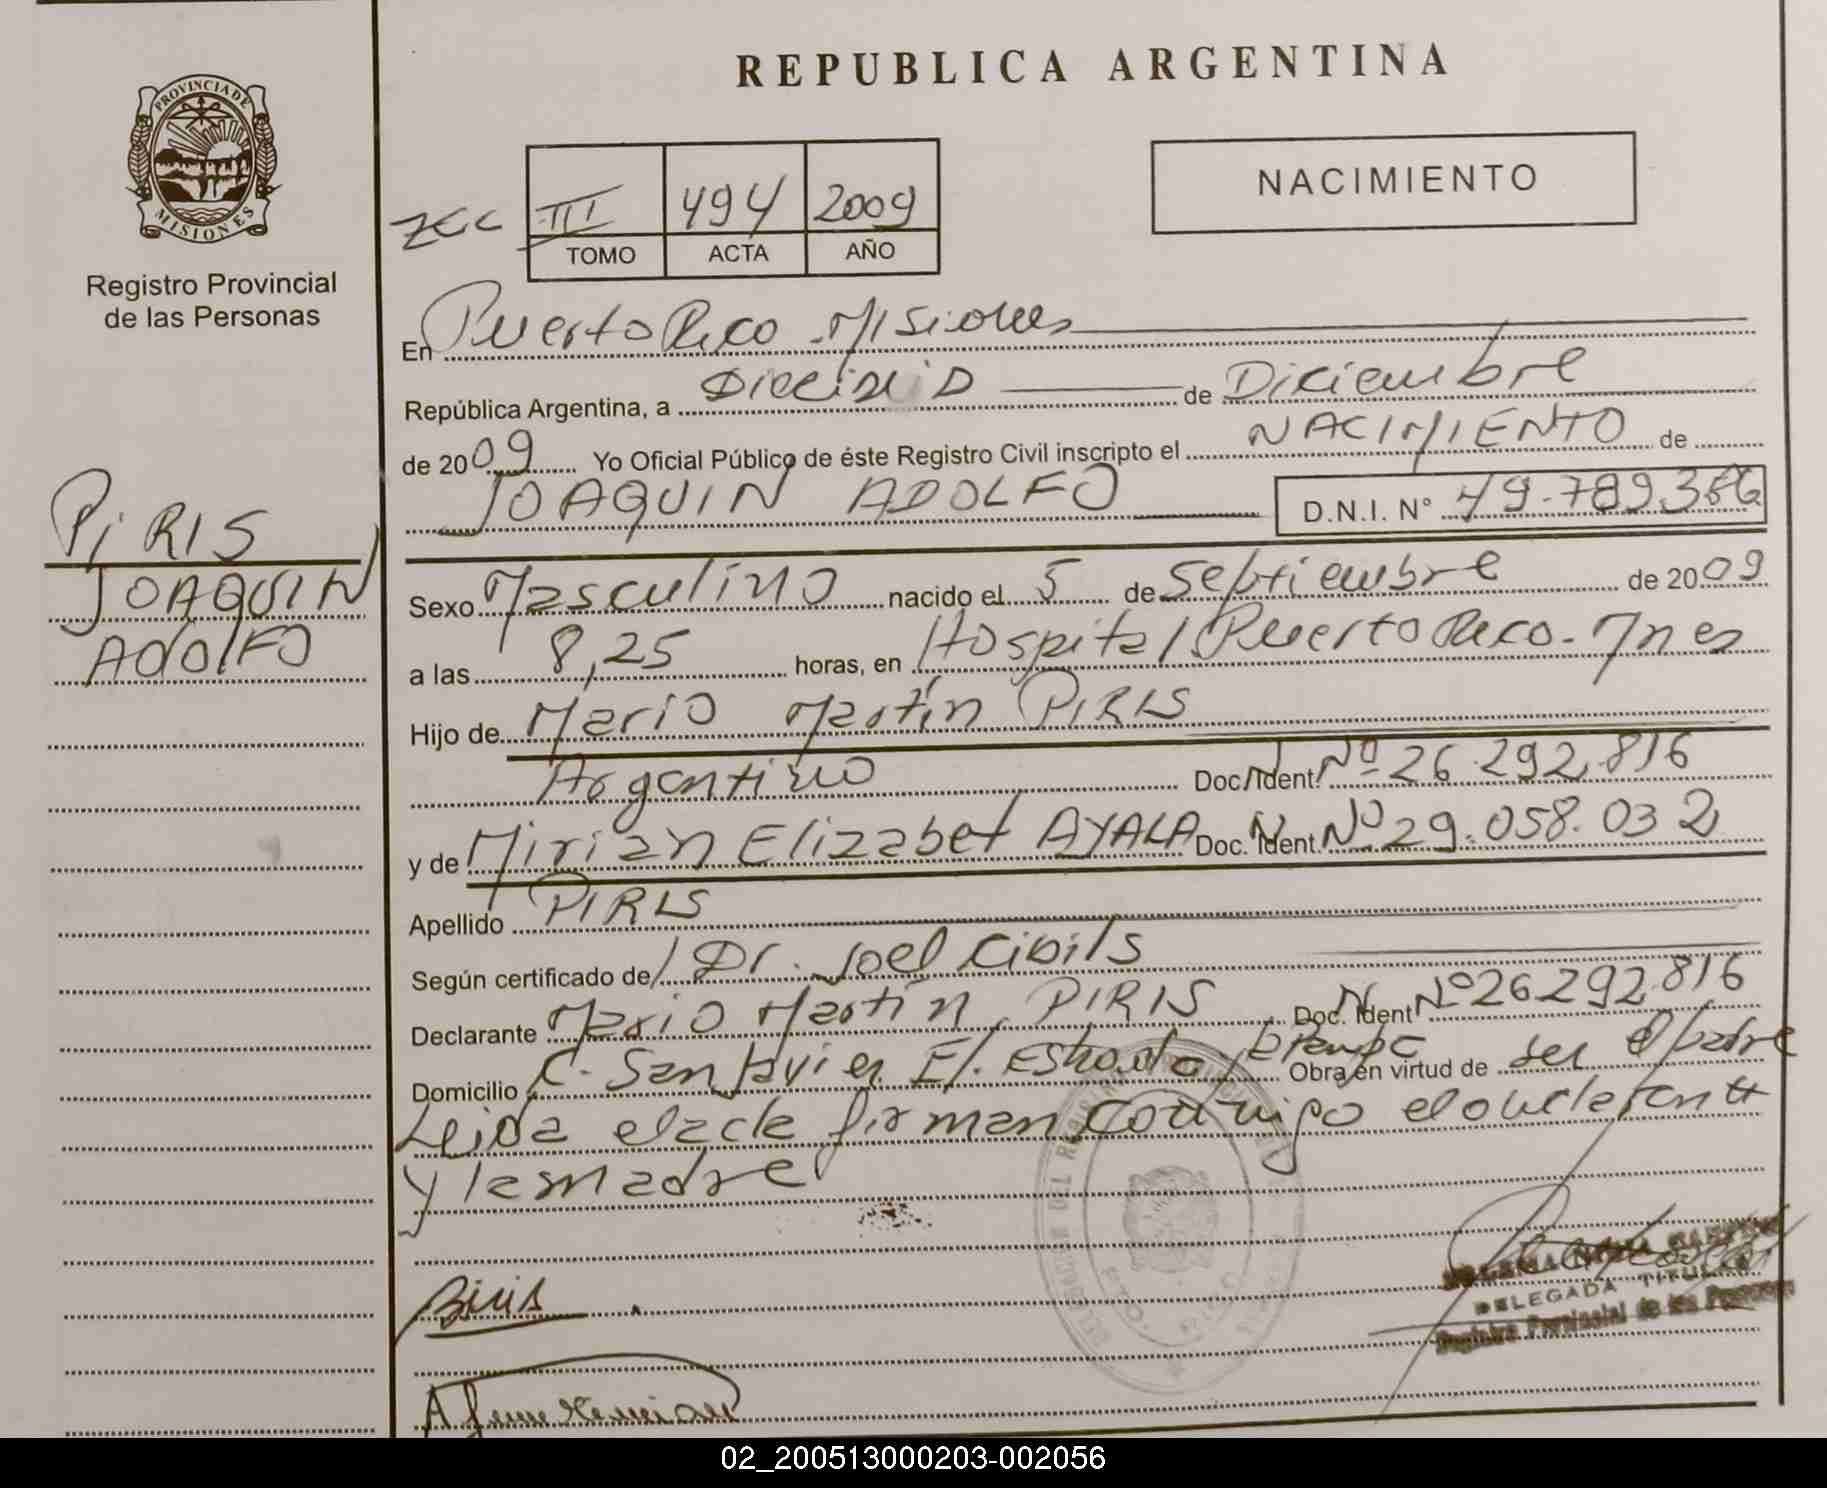 REPUBLICA ARGENTINA
PROVINCIA DE
MISIONES
Registro Provincial
de las Personas
NACIMIENTO
III 494 2009
TOMO ACTA AÑO
En Puerto Rico - Misiones
República Argentina, a de Diciembre
de 2009 Yo Oficial Público de éste Registro Civil inscripto el NACIMIENTO de
JOAQUIN ADOLFO D.N.I. Nº 49.789.366
PIRIS
JOAQUIN
ADOLFO
Sexo Masculino nacido el 5 de Septiembre de 2009
a las 8,25 horas, en Hospital Puerto Rico - Mnes
Hijo de Mario Martín PIRIS
Argentino Doc. Ident. Nº 26.292.816
y de Mirian Elizabet AYALA Doc. Ident. Nº 29.058.032
Apellido PIRIS
Según certificado de Dr. Joel Cibils
Declarante Mario Martín PIRIS Doc. Ident Nº 26.292.816
Domicilio C. San Javier Obra en virtud de ser el padre
Leida el acta firman conmigo el
y la madre
DELEGADA TITULAR
Registro Provincial de las Personas
02_200513000203-002056